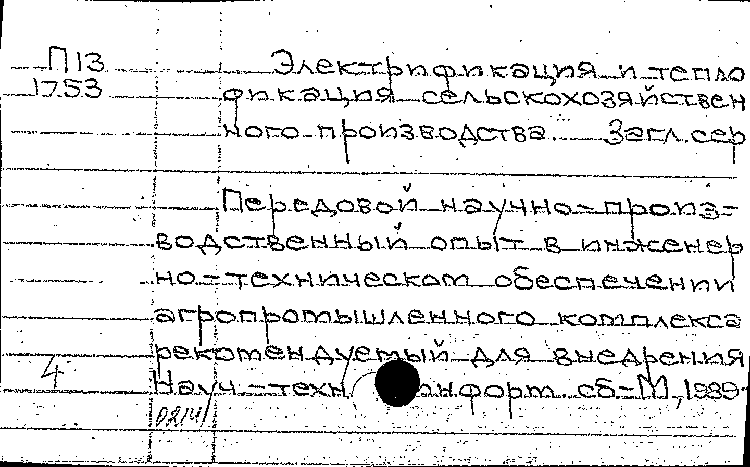 П13
1753
Электрификация и тепло
фикация сельскохозяйствен
ного производства. Загл.сер
Передовой научно-произ-
водственный опыт в инженер
но-техническом обеспечении
агропромышленного комплекса
рекомендуемый для внедрения
4
Науч-техн информ. сб-М, 1989-